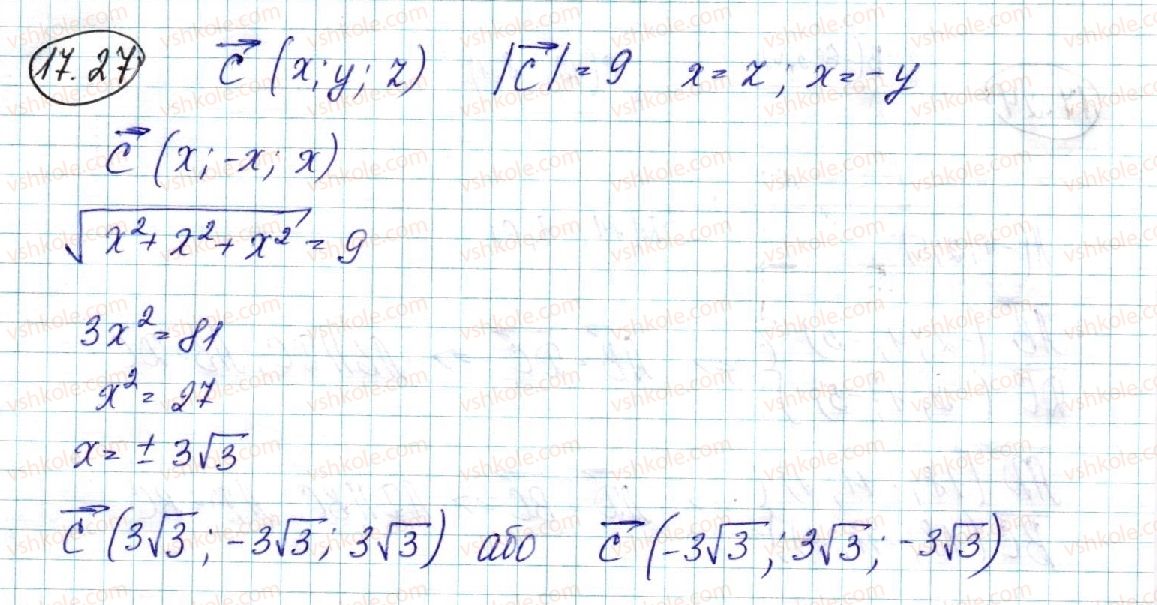 17.27 c⃗ (x; y; z) |c⃗| = 9 x = z; x = -y
c⃗ (x; -x; x)
√(x² + x² + x²) = 9
3x² = 81
x² = 27
x = ± 3√3
c⃗ (3√3; -3√3; 3√3) або c⃗ (-3√3; 3√3; -3√3)